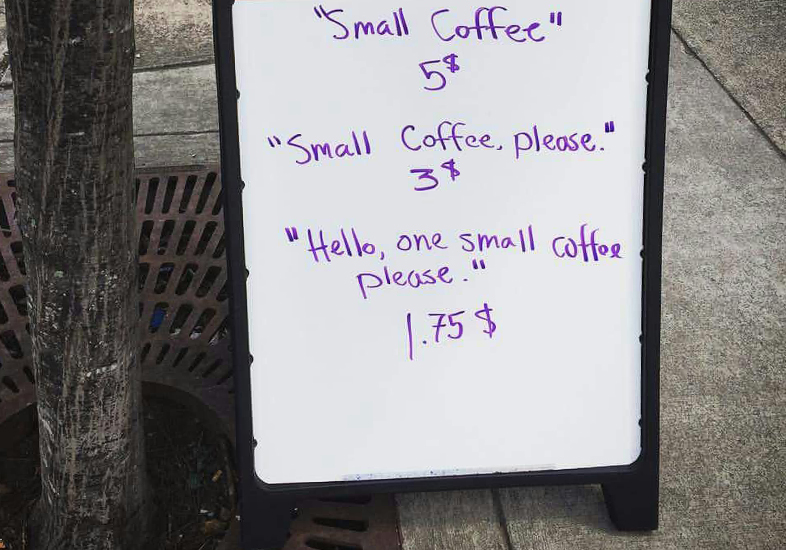 "Small Coffee"
5$
"Small Coffee, please."
3$
"Hello, one small coffee
please."
1.75 $